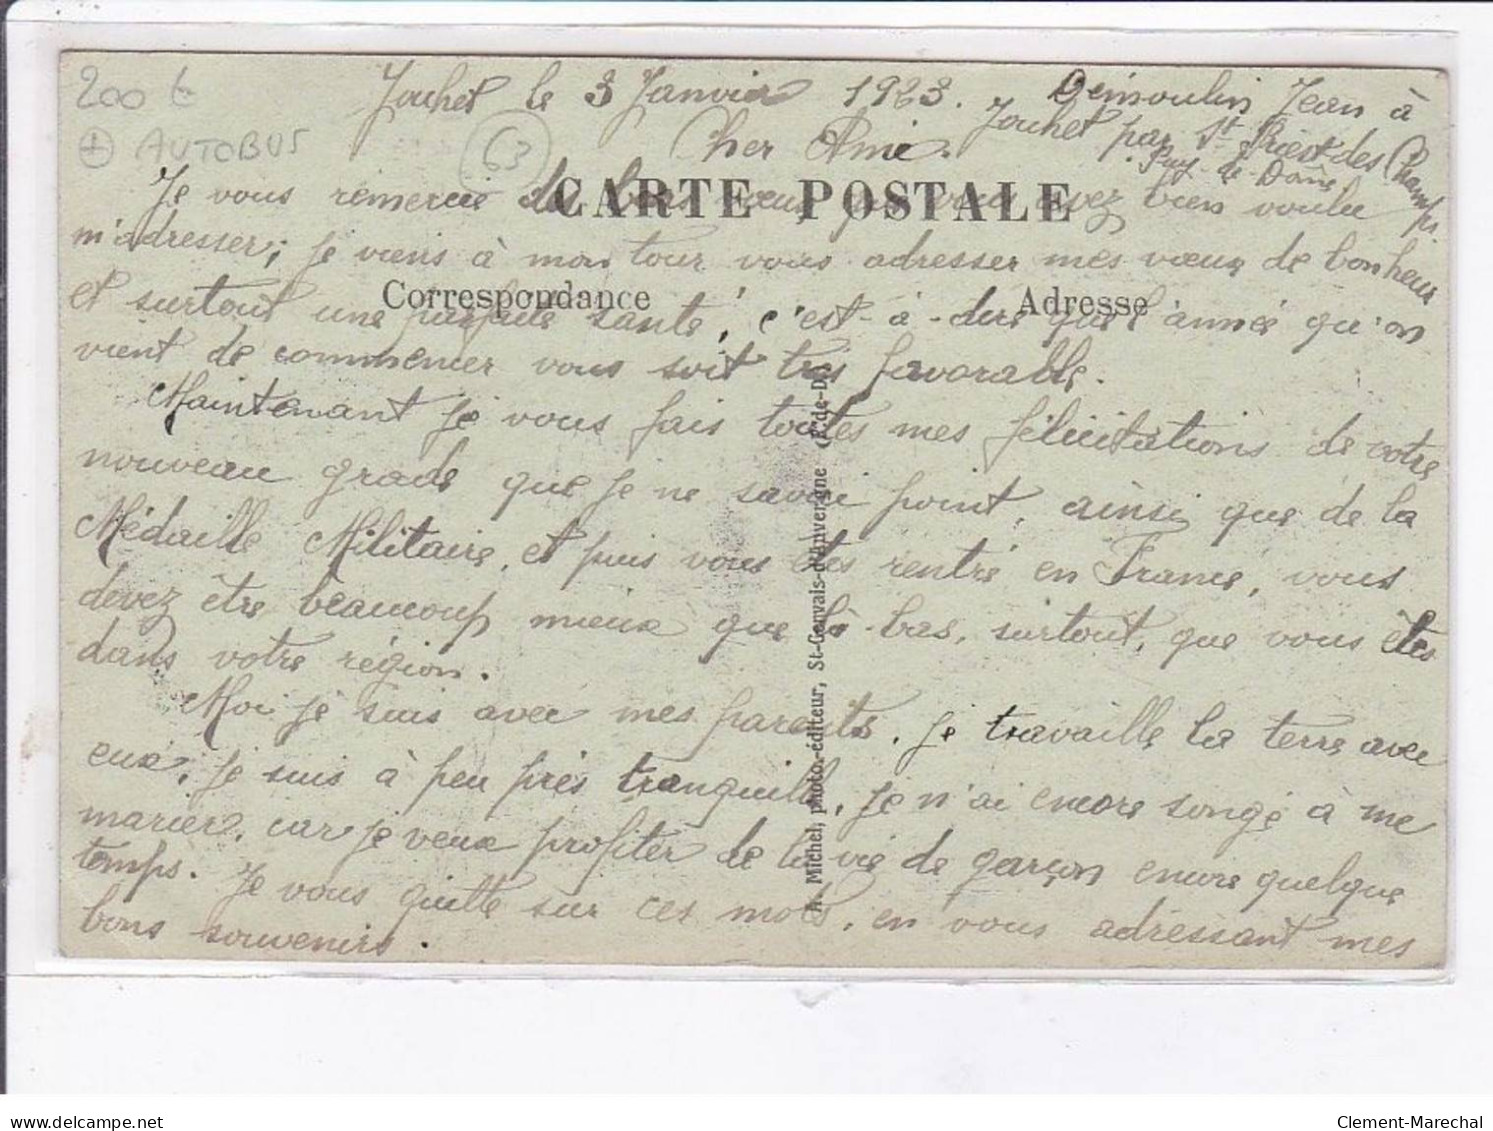 200 t
+ AUTOBUS
63
Jouhet le 3 Janvier 1923.
Demoulin Jean à
Jouhet par St Priest-des Champs
Puy-de-Dôme
Cher Ami.
CARTE POSTALE
Je vous remercie des bons vœux que vous avez bien voulu
m'adresser; je viens à mon tour vous adresser mes vœux de bonheur
Correspondance
Adresse
et surtout une parfaite santé, c'est-à-dire que l'année qu'on
vient de commencer vous soit très favorable.
Maintenant je vous fais toutes mes félicitations de votre
nouveau grade que je ne savai point, ainsi que de la
Médaille Militaire, et puis vous êtes rentré en France, vous
devez être beaucoup mieux que là-bas, surtout, que vous êtes
dans votre région.
Moi je suis avec mes parents, je travaille la terre avec
eux, je suis à peu près tranquille, je n'ai encore songé à me
marier, car je veux profiter de la vie de garçon encore quelque
temps. Je vous quitte sur ces mots, en vous adressant mes
bons souvenirs.
Michel, photo-éditeur, St-Gervais-d'Auvergne (P.-de-D.)
Clement-Marechal